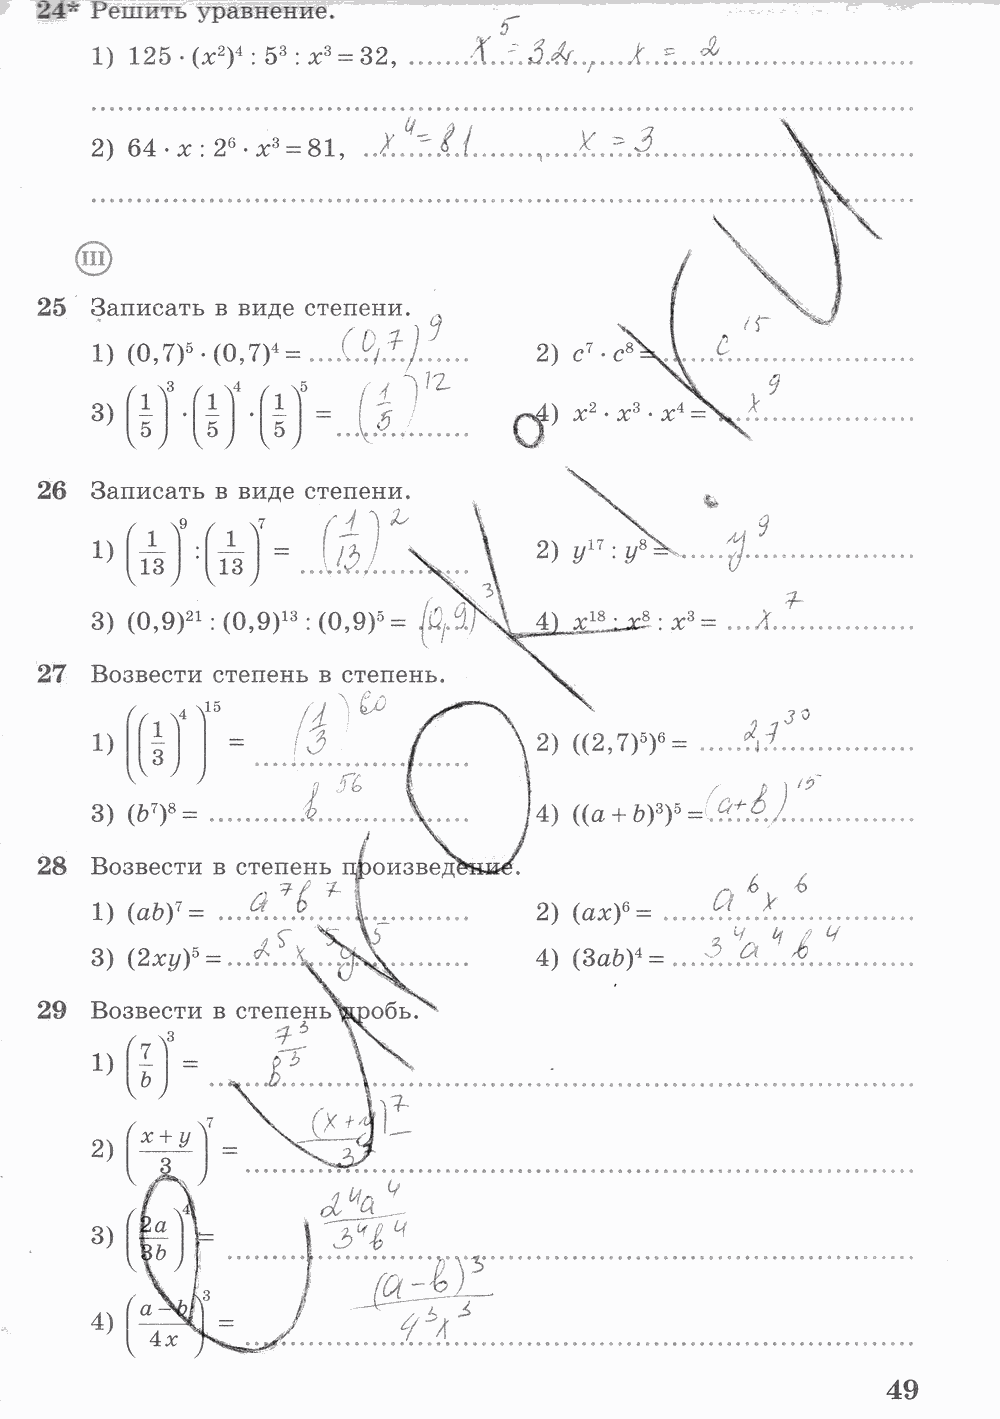 24* Решить уравнение.
1) 125 · (x²)⁴ : 5³ : x³ = 32, x⁵ = 32, x = 2
2) 64 · x : 2⁶ · x³ = 81, x⁴ = 81, x = 3
III
25 Записать в виде степени.
1) (0,7)⁵ · (0,7)⁴ = (0,7)⁹ 2) c⁷ · c⁸ = c¹⁵
3) (1/5)³ · (1/5)⁴ · (1/5)⁵ = (1/5)¹² 4) x² · x³ · x⁴ = x⁹
26 Записать в виде степени.
1) (1/13)⁹ : (1/13)⁷ = (1/13)² 2) y¹⁷ : y⁸ = y⁹
3) (0,9)²¹ : (0,9)¹³ : (0,9)⁵ = (0,9)³ 4) x¹⁸ : x⁸ : x³ = x⁷
27 Возвести степень в степень.
1) ((1/3)⁴)¹⁵ = (1/3)⁶⁰ 2) ((2,7)⁵)⁶ = 2,7³⁰
3) (b⁷)⁸ = b⁵⁶ 4) ((a + b)³)⁵ = (a+b)¹⁵
28 Возвести в степень произведение.
1) (ab)⁷ = a⁷b⁷ 2) (ax)⁶ = a⁶x⁶
3) (2xy)⁵ = 2⁵x⁵y⁵ 4) (3ab)⁴ = 3⁴a⁴b⁴
29 Возвести в степень дробь.
1) (7/b)³ = 7³/b³
2) ((x + y)/3)⁷ = (x+y)⁷/3⁷
3) (2a/3b)⁴ = 2⁴a⁴/3⁴b⁴
4) ((a − b)/4x)³ = (a−b)³/4³x³
49